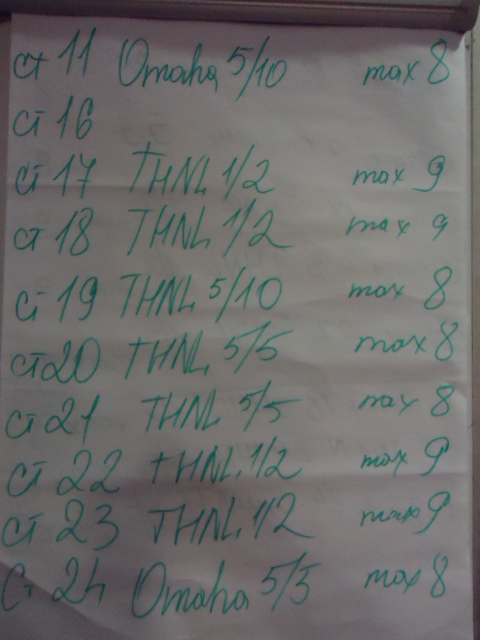 ст 11 Omaha 5/10 max 8
ст 16
ст 17 THNL 1/2 max 9
ст 18 THNL 1/2 max 9
ст 19 THNL 5/10 max 8
ст 20 THNL 5/5 max 8
ст 21 THNL 5/5 max 8
ст 22 THNL 1/2 max 9
ст 23 THNL 1/2 max 9
ст 24 Omaha 5/5 max 8